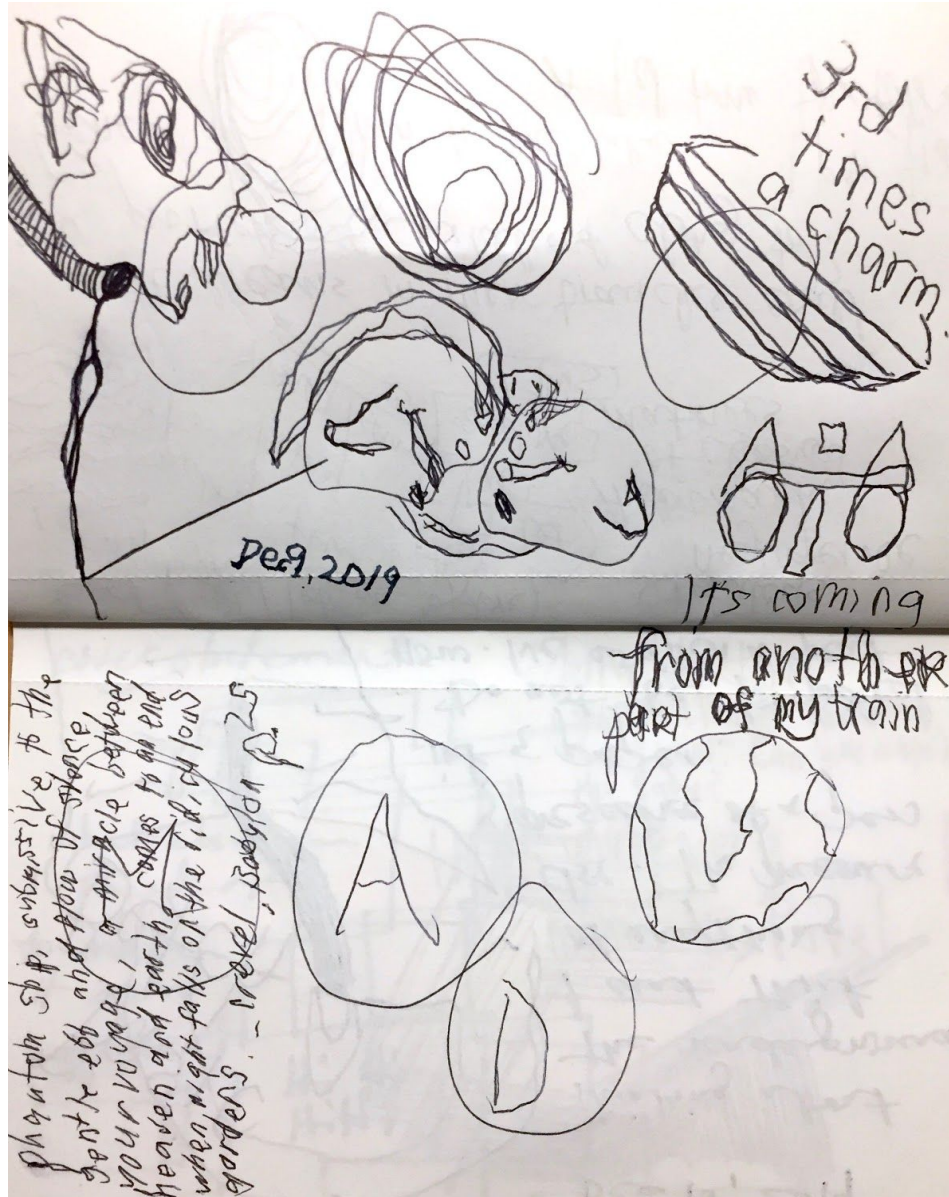 3rd
times
a charm
Dec 9, 2019
It's coming
from another
part of my brain
phantom ship, submissive to the
gentle ebb and flow of stone
your voyage, a miracle between
heaven and earth, comes to an end
when night falls on the ridiculous
gardens. - Crevel, Babylon p. 25
A
D